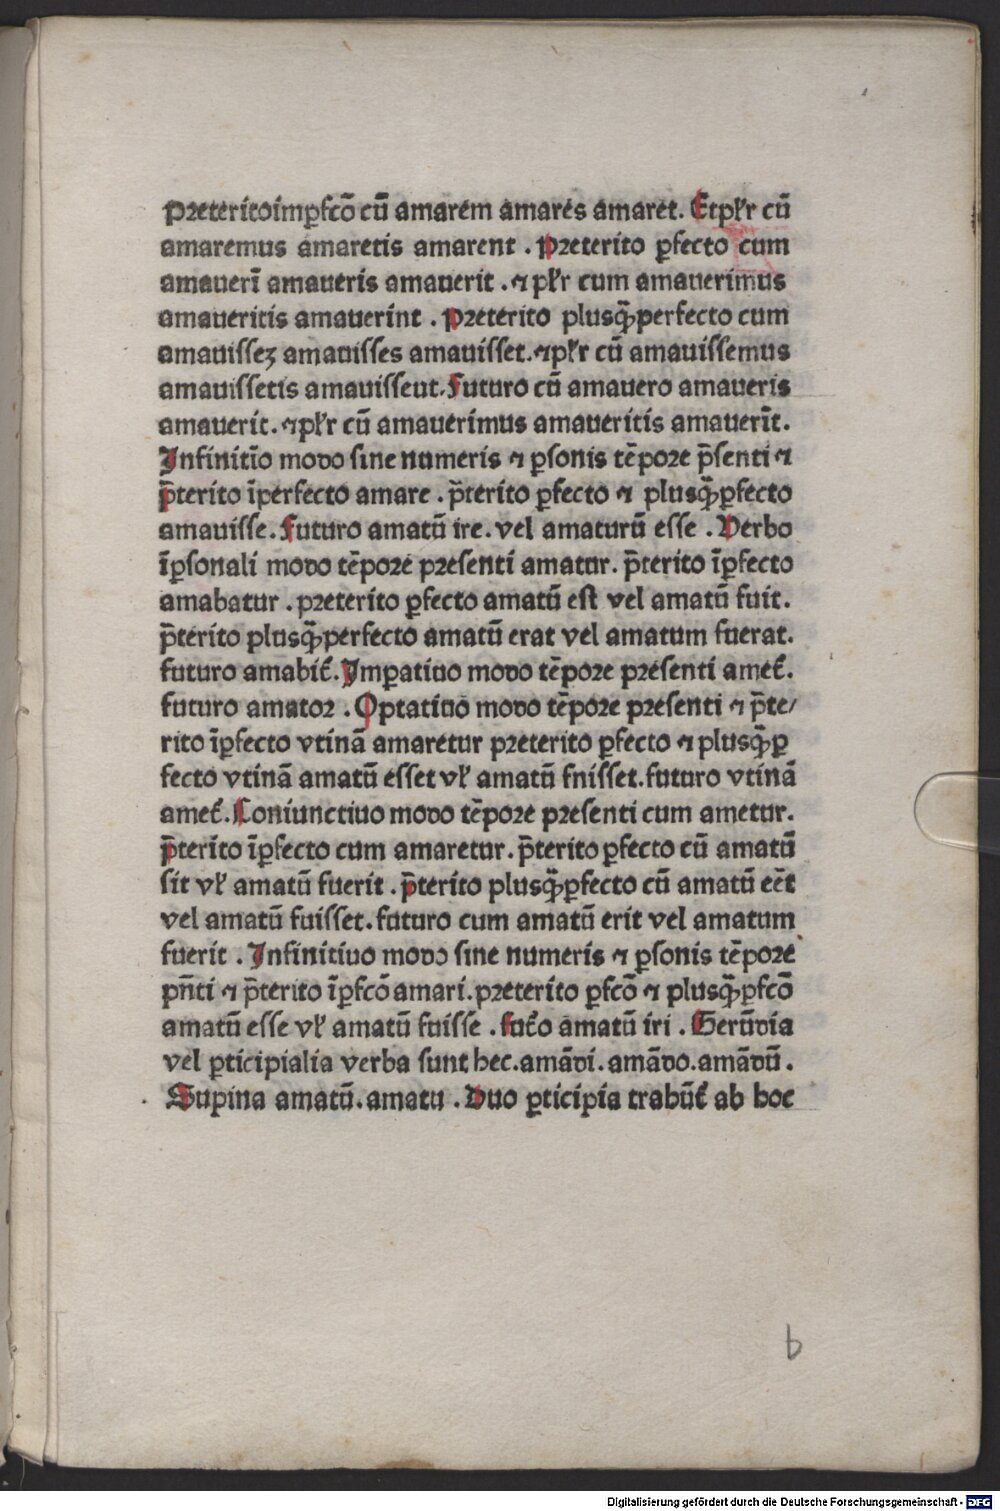 Preteritoimꝑfcō cū amarem amares amaret. Etpłr cū
amaremus amaretis amarent . Preterito ꝑfecto cum
amauerī amaueris amauerit . ⁊ płr cum amauerimus
amaueritis amauerint . Preterito plusꝙ̄perfecto cum
amauisseꝫ amauisses amauisset. ⁊płr cū amauissemus
amauissetis amauisseut. Futuro cū amauero amaueris
amauerit. ⁊płr cū amauerimus amaueritis amauerīt.
Infinitīo modo sine numeris ⁊ ꝑsonis tēpore p̄senti ⁊
p̄terito īperfecto amare . p̄terito ꝑfecto ⁊ plusꝙ̄ꝑfecto
amauisse. Futuro amatū ire. vel amaturū esse . Verbo
īꝑsonali modo tēpore presenti amatur. p̄terito īꝑfecto
amabatur . preterito ꝑfecto amatū est vel amatū fuit.
p̄terito plusꝙ̄perfecto amatū erat vel amatum fuerat.
futuro amabit̄. Imꝑatiuo modo tēpore presenti amet̄.
futuro amator . Optatiuo modo tēpore presenti ⁊ p̄te/
rito īꝑfecto vtinā amaretur preterito ꝑfecto ⁊ plusꝙ̄ꝑ
fecto vtinā amatū esset vł amatū fnisset. futuro vtinā
amet̄. Coniunctiuo modo tēpore presenti cum ametur.
p̄terito īꝑfecto cum amaretur. p̄terito ꝑfecto cū amatū
sit vł amatū fuerit . p̄terito plusꝙ̄ꝑfecto cū amatū eēt
vel amatū fuisset. futuro cum amatū erit vel amatum
fuerit . Infinitiuo modo sine numeris ⁊ ꝑsonis tēpore
pn̄ti ⁊ p̄terito īꝑfcō amari. preterito ꝑfcō ⁊ plusꝙ̄ꝑfcō
amatū esse vł amatū fuisse . fut̄o amatū iri . Gerūdia
vel ꝑticipialia verba sunt hec. amādi. amādo. amādū.
Supina amatū. amatu . Duo ꝑticipia trahūt̄ ab hoc
b
Digitalisierung gefördert durch die Deutsche Forschungsgemeinschaft - DFG